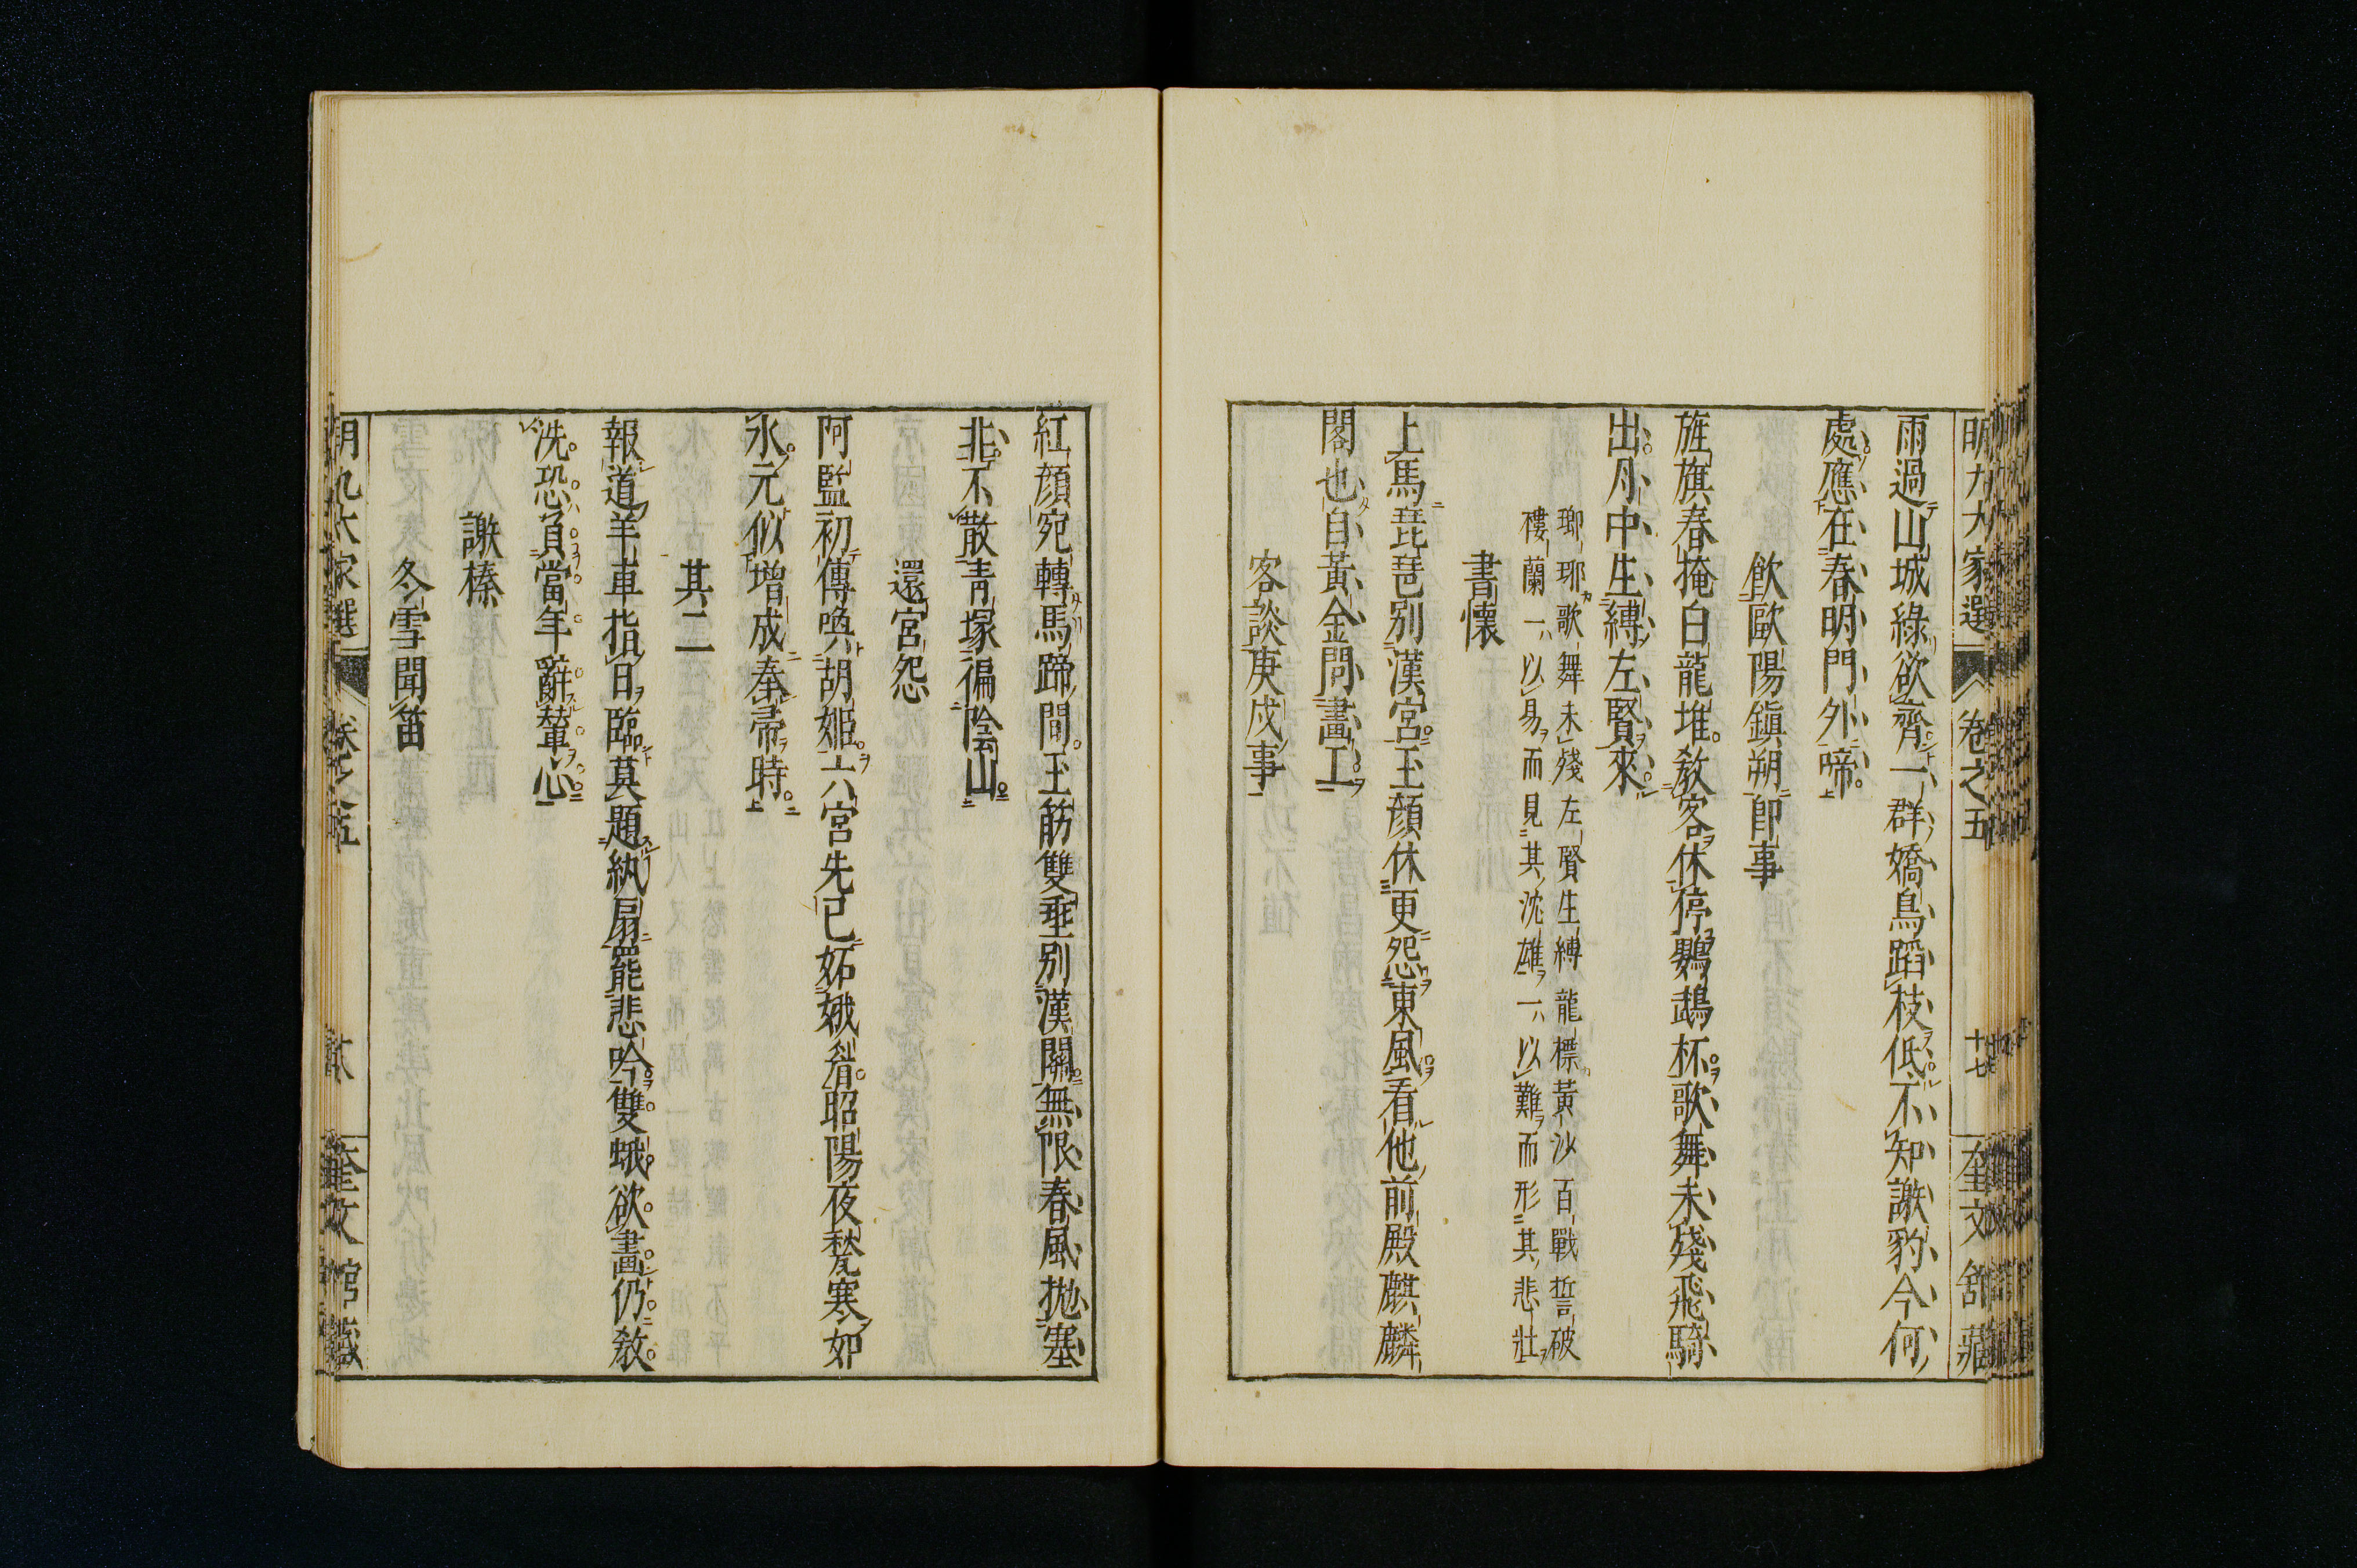 明九大家選 卷之五 十七 奎文舘藏
雨過山城綠欲齊一群嬌鳥蹈枝低不知謝豹今何
處應在春明門外啼
飲歐陽鎭朔卽事
旌旗春掩白龍堆敎客休停鸚鵡杯歌舞未殘飛騎
出月中生縛左賢來
瑯琊歌舞未殘左賢生縛龍標黃沙百戰誓破
樓蘭一以易而見其沈雄一以難而形其悲壯
書懷
上馬琵琶別漢宮玉顏休更怨東風看他前殿麒麟
閣也自黃金問畫工
客談庚戌事
紅顏宛轉馬蹄間玉筋雙垂別漢關無限春風抛塞
北不散青塚偏陰山
還宮怨
阿監初傳喚胡姬六宮先已妬娥眉昭陽夜甃寒如
水元似增成奉帚時
其二
報道羊車指日臨莫題紈扇罷悲吟雙蛾欲畫仍敎
洗恐負當年辭輦心
謝榛
冬雪聞笛
明九大家選 卷之五 奎文舘藏